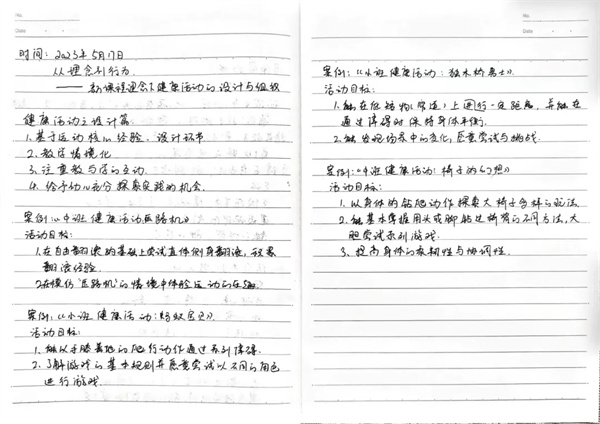 No.
Date
时间：2023年5月17日
从理念到行为
——新课程理念下健康活动的设计与组织
健康活动之设计篇
1.基于运动核心经验，设计环节
2.教学情境化
3.注重教与学的互动
4.给予幼儿充分探索实践的机会.
案例：《中班健康活动压路机》
活动目标：
1.在自由翻滚的基础上尝试直体侧身翻滚，积累
翻滚经验.
2.在模仿"压路机"的情境中体验运动的乐趣.
案例：《小班健康活动：蚂蚁 》.
活动目标：
1.能以手膝着地的爬行动作通过系列障碍.
2.了解游戏的基本规则并愿意尝试以不同的角色
进行游戏.
No.
Date
案例：《小班健康活动：独木桥勇士》.
活动目标：
1.能在低结构（ ）上进行一定距离，并能在
通过障碍时保持身体平衡.
2.能发现场景中的变化，愿意尝试与挑战.
案例：《中班健康活动：椅子的幻想》
活动目标：
1.以身体的钻爬动作探索大椅子多样的玩法.
2.能基本掌握用头或脚钻过椅背的不同方法，大
胆尝试系列游戏.
3.提高身体的柔韧性与协调性.